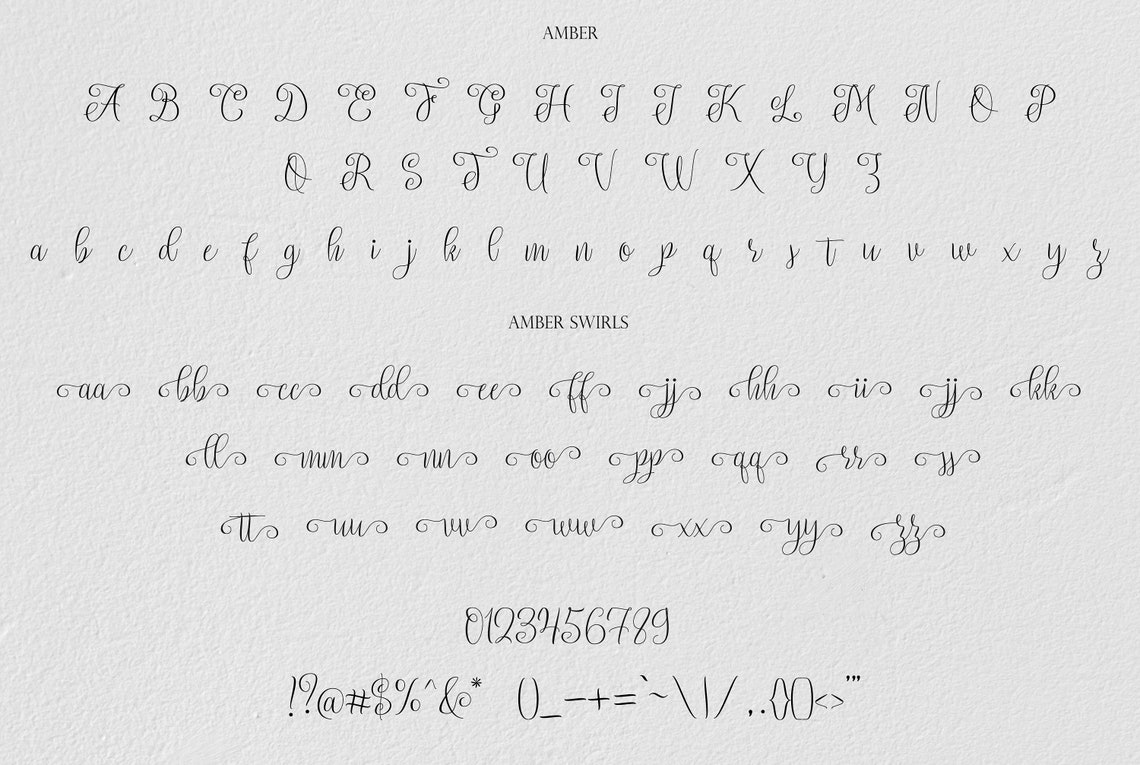 AMBER
A B C D E F G H I J K L M N O P
Q R S T U V W X Y Z
a b c d e f g h i j k l m n o p q r s t u v w x y z
AMBER SWIRLS
aa bb cc dd ee ff jj hh ii jj kk
ll mm nn oo pp qq rr ss
tt uu vv ww xx yy zz
0123456789
!?@#$%^&* ()_-+=`~\|/,.{}[]<>'"